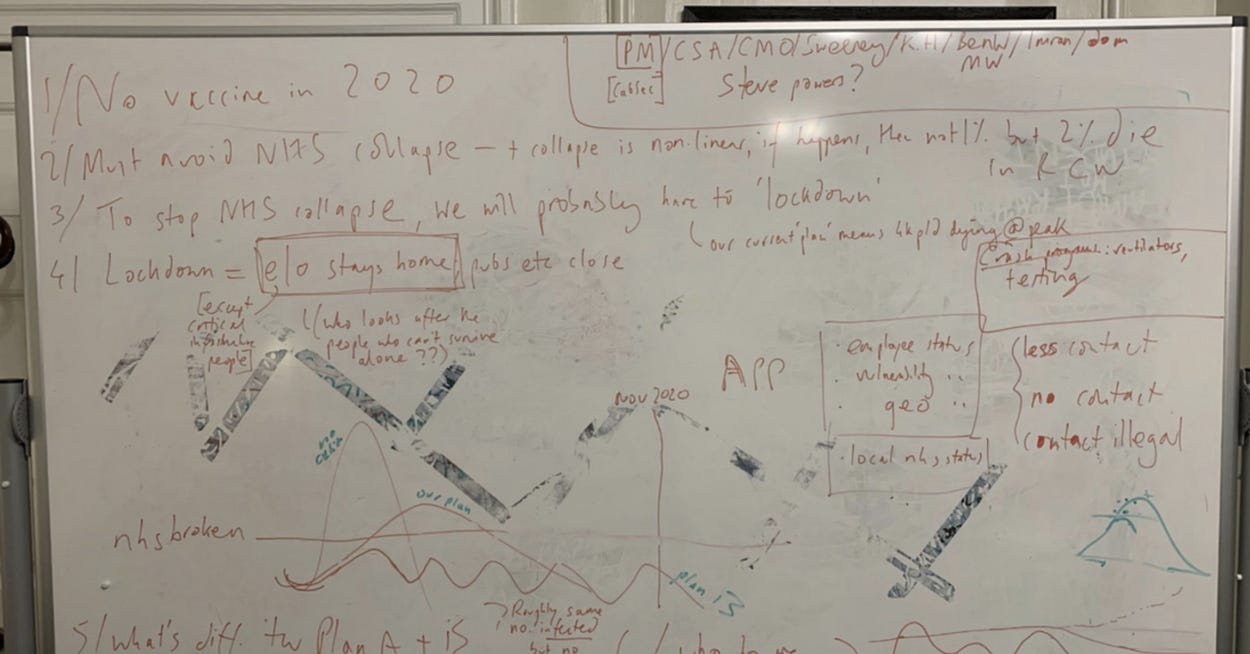 [PM]/CSA/CMO/Sweeney/K.H/BenW/Imran/dom
MW
[CabSec]
Steve powers?
1/ No vaccine in 2020
2/ Must avoid NHS collapse — + collapse is non-linear, if happens, then not 1% but 2% die
in RCW
3/ To stop NHS collapse, we will probably have to 'lockdown'
our current 'plan' means 4k p/d dying @ peak
4/ Lockdown = e/o stays home, pubs etc close
[except
critical
people]
(who looks after the
people who can't survive
alone??)
Crash programs: ventilators,
testing
APP
· employee status
· vulnerability "
· geo "
· local nhs status
less contact
no contact
contact illegal
NOV 2020
no
our plan
nhs broken
plan B
5/ What's diff. tw Plan A + B
Roughly same
no. infected
but no